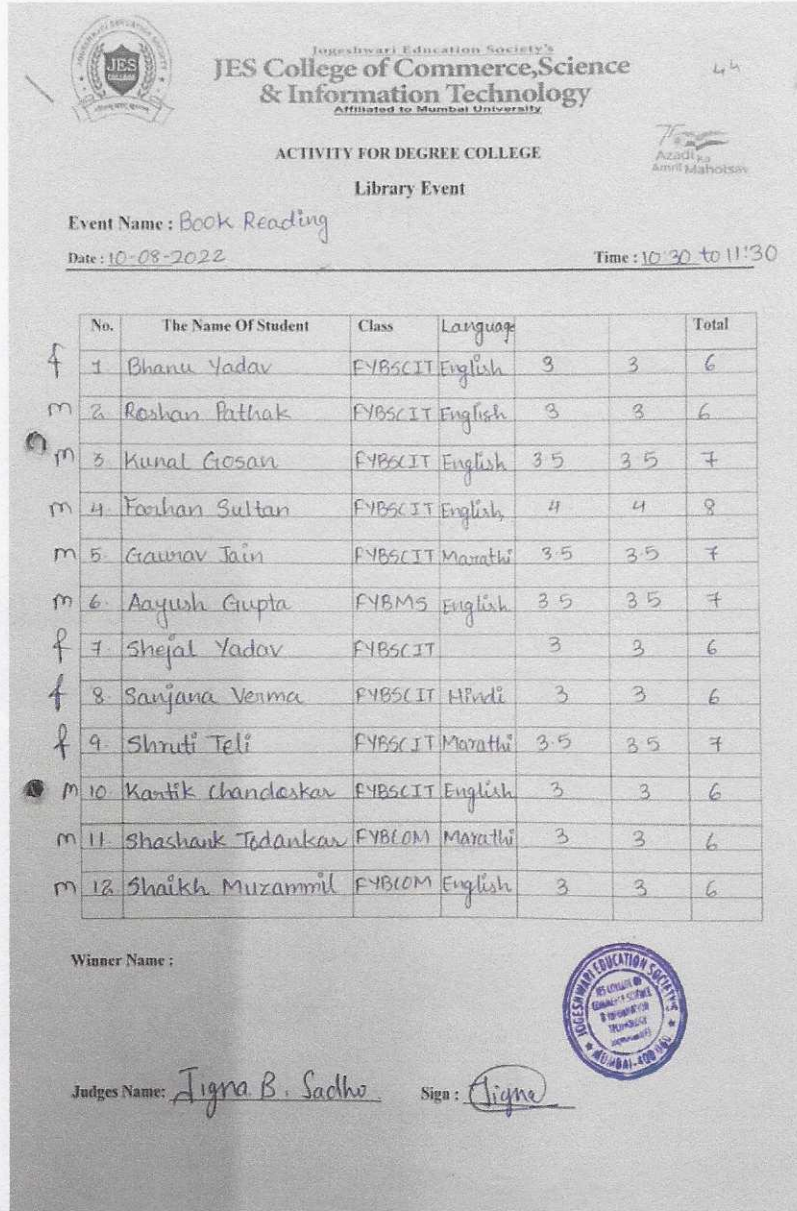 JOGESHWARI EDUCATION SOCIETY
JES
COLLEGE
Jogeshwari Education Society's
JES College of Commerce,Science
& Information Technology
Affiliated to Mumbai University
44
ACTIVITY FOR DEGREE COLLEGE
Azadi Ka
Amrit Mahotsav
Library Event
Event Name : Book Reading
Date : 10-08-2022 Time : 10:30 to 11:30
No. The Name Of Student Class Language Total
f 1 Bhanu Yadav FYBSCIT English 3 3 6
m 2 Roshan Pathak FYBSCIT English 3 3 6
m 3 Kunal Gosan FYBSCIT English 3 5 3 5 7
m 4 Farhan Sultan FYBSCIT English 4 4 8
m 5 Gaurav Jain FYBSCIT Marathi 3.5 3.5 7
m 6 Aayush Gupta FYBMS English 3 5 3 5 7
f 7 Shejal Yadav FYBSCIT 3 3 6
f 8 Sanjana Verma FYBSCIT Hindi 3 3 6
f 9 Shruti Teli FYBSCIT Marathi 3.5 3 5 7
m 10 Kartik Chandoskar FYBSCIT English 3 3 6
m 11 Shashank Todankar FYBCOM Marathi 3 3 6
m 12 Shaikh Muzammil FYBCOM English 3 3 6
Winner Name :
JOGESHWARI EDUCATION SOCIETY'S
JES COLLEGE OF
COMMERCE SCIENCE
& INFORMATION
TECHNOLOGY
MUMBAI-400 060
Judges Name: Jigna B. Sadho Sign : Jigna